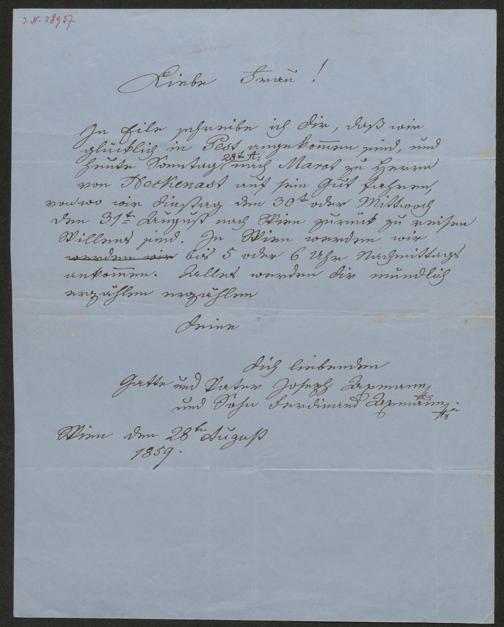 I. N. 28957
Liebe Frau!
In Eile schreibe ich Dir, daß wir
glücklich in Pest angekommen sind, und
heute Sonntag 28th A. nach Marot zu Herrn
von Heckenast auf sein Gut fahren,
von wo wir Dinstag den 30t oder Mittwoch
den 31t August nach Wien zurück zu reisen
Willens sind. In Wien werden wir
werden wir bis 5 oder 6 Uhr Nachmittags
ankommen. Alles werden Dir mündlich
erzählen erzählen
Deine
Dich liebenden
Gatte und Vater Joseph Axmann
und Sohn Ferdinand Axmann
Wien den 28ten August
1859.